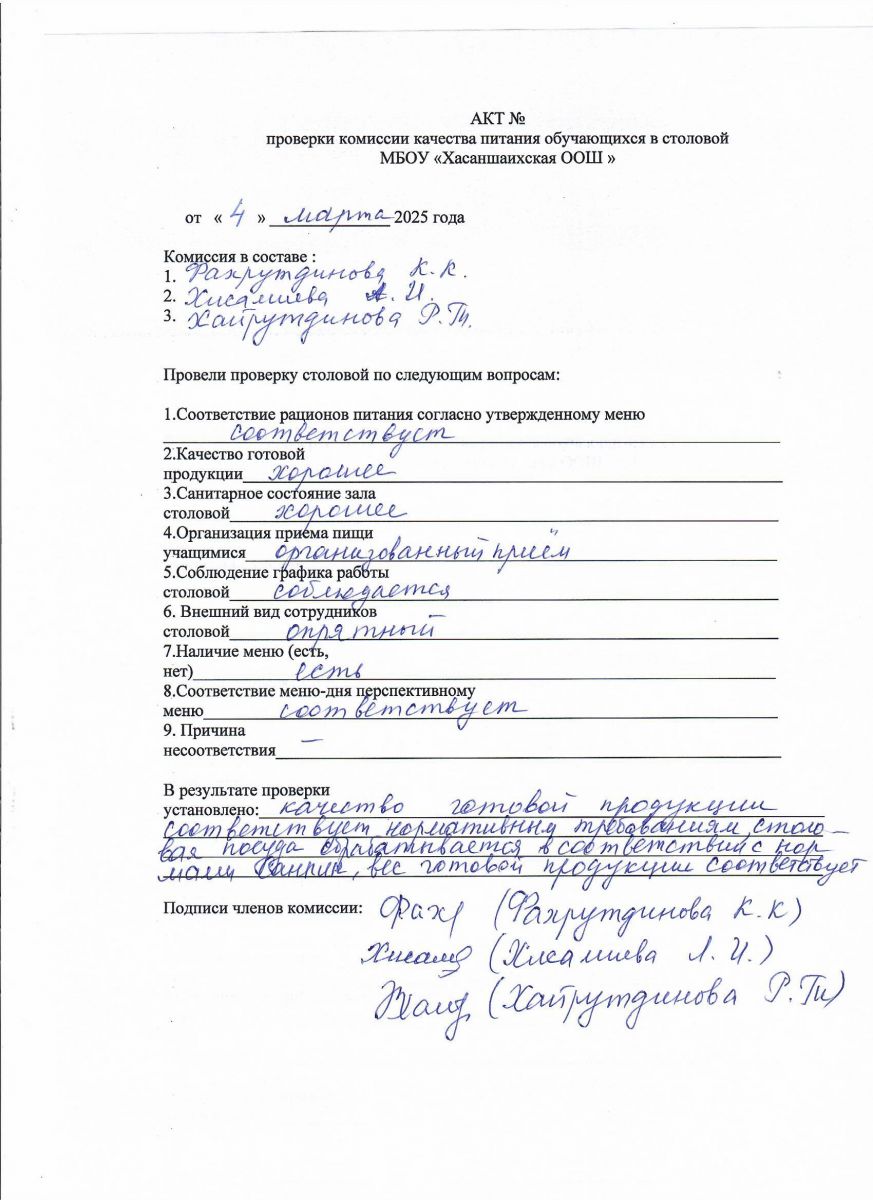 АКТ №
проверки комиссии качества питания обучающихся в столовой
МБОУ «Хасаншаихская ООШ »
от « 4 » марта 2025 года
Комиссия в составе :
1. Фахрутдинова К.К.
2. Хисамиева Л.И.
3. Хайрутдинова Р.Ти.
Провели проверку столовой по следующим вопросам:
1.Соответствие рационов питания согласно утвержденному меню
соответствует
2.Качество готовой
продукции хорошее
3.Санитарное состояние зала
столовой хорошее
4.Организация приема пищи
учащимися организованный приём
5.Соблюдение графика работы
столовой соблюдается
6. Внешний вид сотрудников
столовой опрятный
7.Наличие меню (есть,
нет) есть
8.Соответствие меню-дня перспективному
меню соответствует
9. Причина
несоответствия —
В результате проверки
установлено: качество готовой продукции
соответствует нормативным требованиям, столо-
вая посуда обрабатывается в соответствии с нор
мами Санпин, вес готовой продукции соответствует
Подписи членов комиссии: Фахр (Фахрутдинова К.К)
Хисами (Хисамиева Л.И.)
(Хайрутдинова Р.Ти)